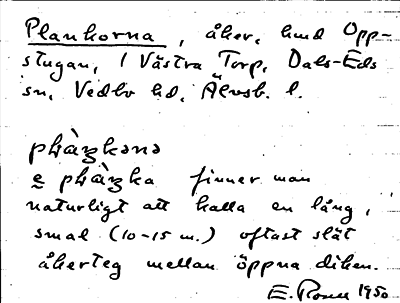 Plankorna, åker, hmd Opp-
stugan, 1 Västra Torp, Dals-Eds
sn, Vedbo hd, Älvsb. l.
finner man
naturligt att kalla en lång,
smal (10-15 m.) oftast slät
åkerteg mellan öppna diken.
E. 1950